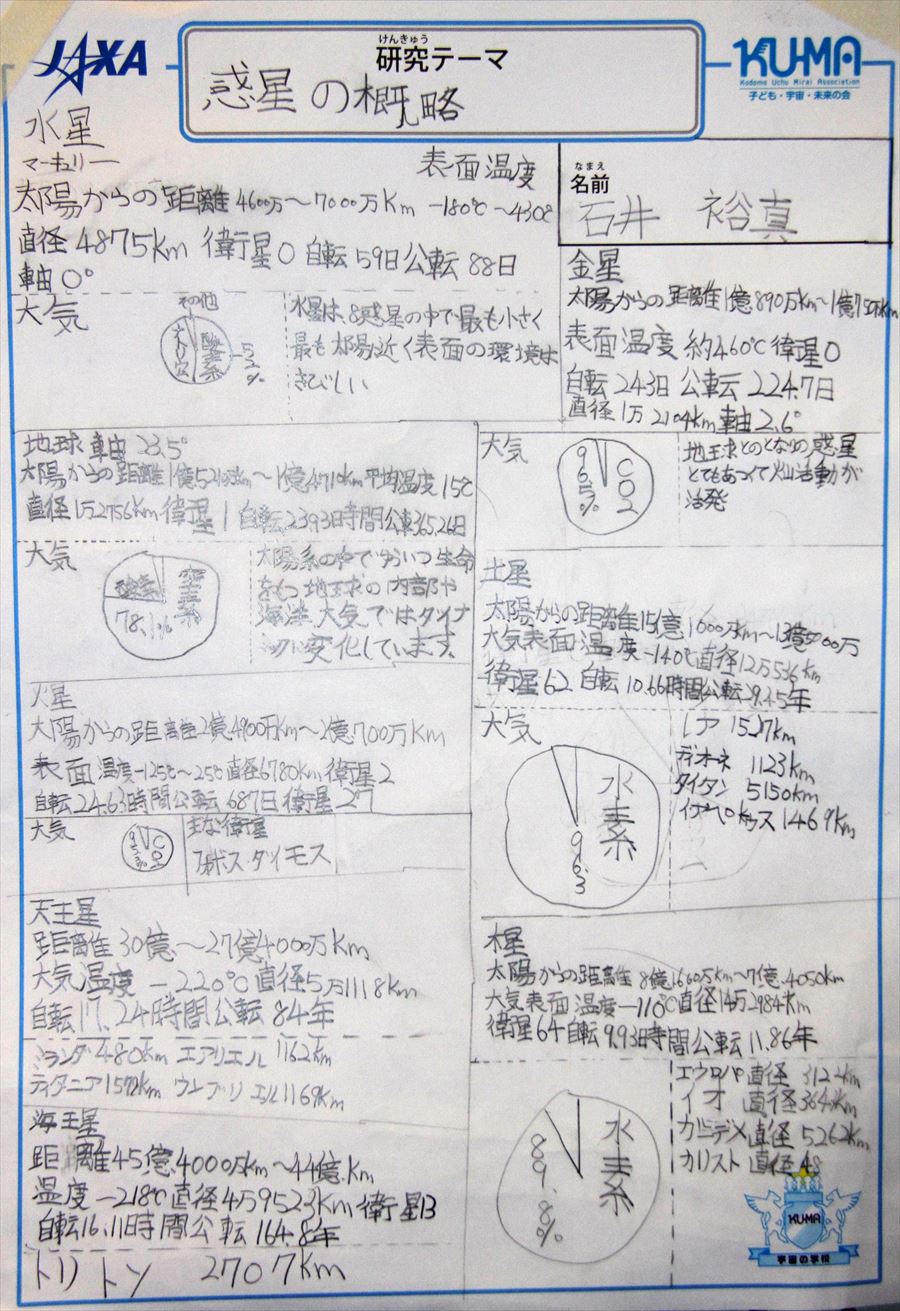 JAXA
けんきゅう
研究テーマ
惑星の概略
KUMA
Kodomo Uchu Mirai Association
子ども・宇宙・未来の会
なまえ
名前
石井 裕真
水星
マーキュリー
表面温度
太陽からの距離4600万〜7000万Km -180℃〜430℃
直径4875km 衛星0 自転59日公転88日
軸0°
大気
その他
ナトリウム
酸素系
52%
水星は、8惑星の中で最も小さく
最も太陽近く表面の環境は
きびしい
金星
太陽からの距離1億890万Km〜1億750万km
表面温度 約460℃衛星0
自転243日 公転224.7日
直径1万2104km軸2.6°
大気
96.5%
CO2
地球とのとなりの惑星
とてもあつくて火山活動が
活発
地球 軸23.5°
太陽からの距離 平均温度15℃
直径1万2756Km衛星1 自転23.93時間公転365.26日
大気
酸素
窒素系
78.1%
太陽系の中でゆいいつ生命
をもつ地球の内部や
海洋大気ではダイナ
ミックに変化しています。
土星
太陽からの距離15億1000万km〜13億5000万
大気表面温度-140℃直径12万536km
衛星62 自転10.66時間公転29.45年
大気
水素系
96.3
レア 1527km
ディオーネ 1123km
タイタン 5150km
イアペトゥス 1469Km
火星
太陽からの距離2億4900万Km〜2億700万Km
表面温度-125℃〜25℃直径6780Km衛星2
自転24.63時間公転687日衛星27
大気
95.3%
CO2
主な衛星
フォボス・ダイモス
天王星
距離30億〜27億4000万Km
大気温度-220℃直径5万1118Km
自転17.24時間公転84年
ミランダ480km エアリエル1162km
ティタニア1578km ウンブリエル1169km
木星
太陽からの距離8億1660万Km〜7億4050km
大気表面温度-110℃直径14万2984Km
衛星64自転9.93時間公転11.86年
水素系
89.8%
エウロパ直径 3122km
イオ 直径3643Km
ガニメデ直径5262Km
カリスト直径48
海王星
距離45億4000万km〜44億Km
温度-218℃直径4万9523Km衛星13
自転16.11時間公転164.8年
トリトン 2707Km
KUMA
宇宙の学校